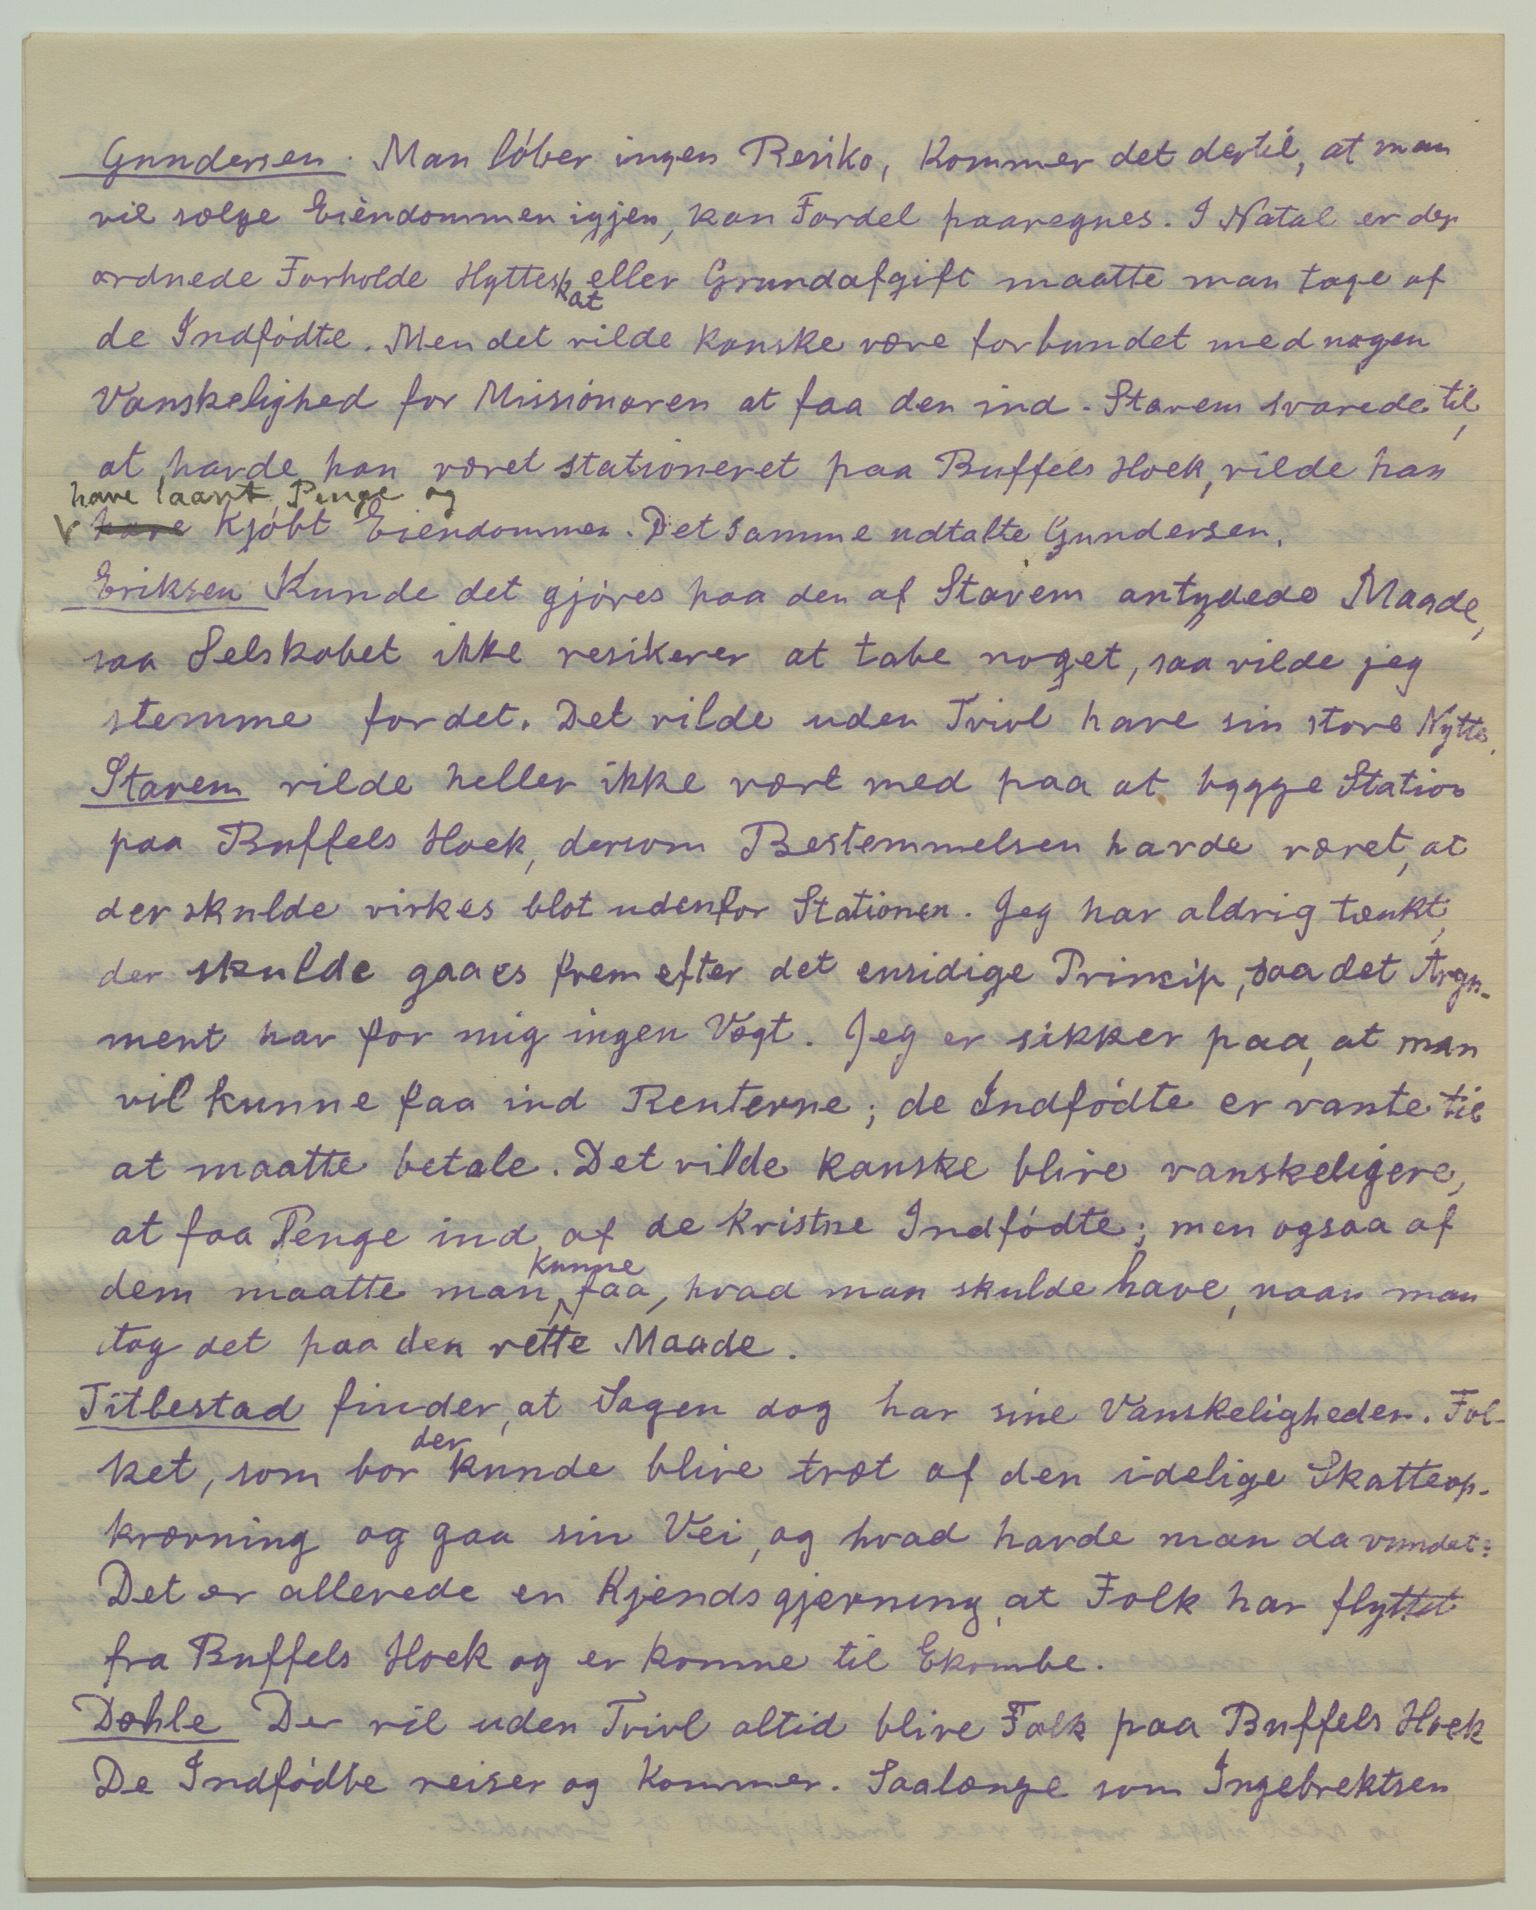 Gundersen. Man löber ingen Resiko, Kommer det dertil, at man
vil sælge Eiendommen igjen, kan Fordel paaregnes. I Natal er der
ordnede Forholde Hytteskat eller Grundafgift maatte man tage af
de Indfödte. Men det vilde kanske være forbundet med nogen
Vanskelighed for Missionæren at faa den ind. Stavem svarede til,
at havde han været stationeret paa Buffels Hoek, vilde han
have laant Penge og
have Kjöbt Eiendommen. Det samme udtalte Gundersen.
Eriksen Kunde det gjöres paa den af Stavem antydede Maade,
saa Selskabet ikke resikerer at tabe noget, saa vilde jeg
stemme for det. Det vilde uden Tvivl have sin store Nytte.
Stavem vilde heller ikke vært med paa at bygge Station
paa Buffels Hoek, dersom Bestemmelsen havde været, at
der skulde virkes blot udenfor Stationen. Jeg har aldrig tænkt,
der skulde gaaes frem efter det ensidige Princip, saa det Argu-
ment har for mig ingen Vægt. Jeg er sikker paa, at man
vil kunne faa ind Renterne; de Indfödte er vante til
at maatte betale. Det vilde kanske blive vanskeligere,
at faa Penge ind af de Kristne Indfödte; men ogsaa af
dem maatte man kunne faa, hvad man skulde have, naar man
tog det paa den rette Maade.
Titlestad finder, at Sagen dog har sine Vanskeligheder. Fol-
ket, som bor der kunde blive træt af den idelige Skatteop-
krævning og gaa sin Vei, og hvad havde man da vundet?
Det er allerede en Kjendsgjerning, at Folk har flyttet
fra Buffels Hoek og er komne til Ekombe.
Dahle Der vil uden Tvivl altid blive Folk paa Buffels Hoek
De Indfödte reiser og Kommer. Saalænge som Ingebrektsen